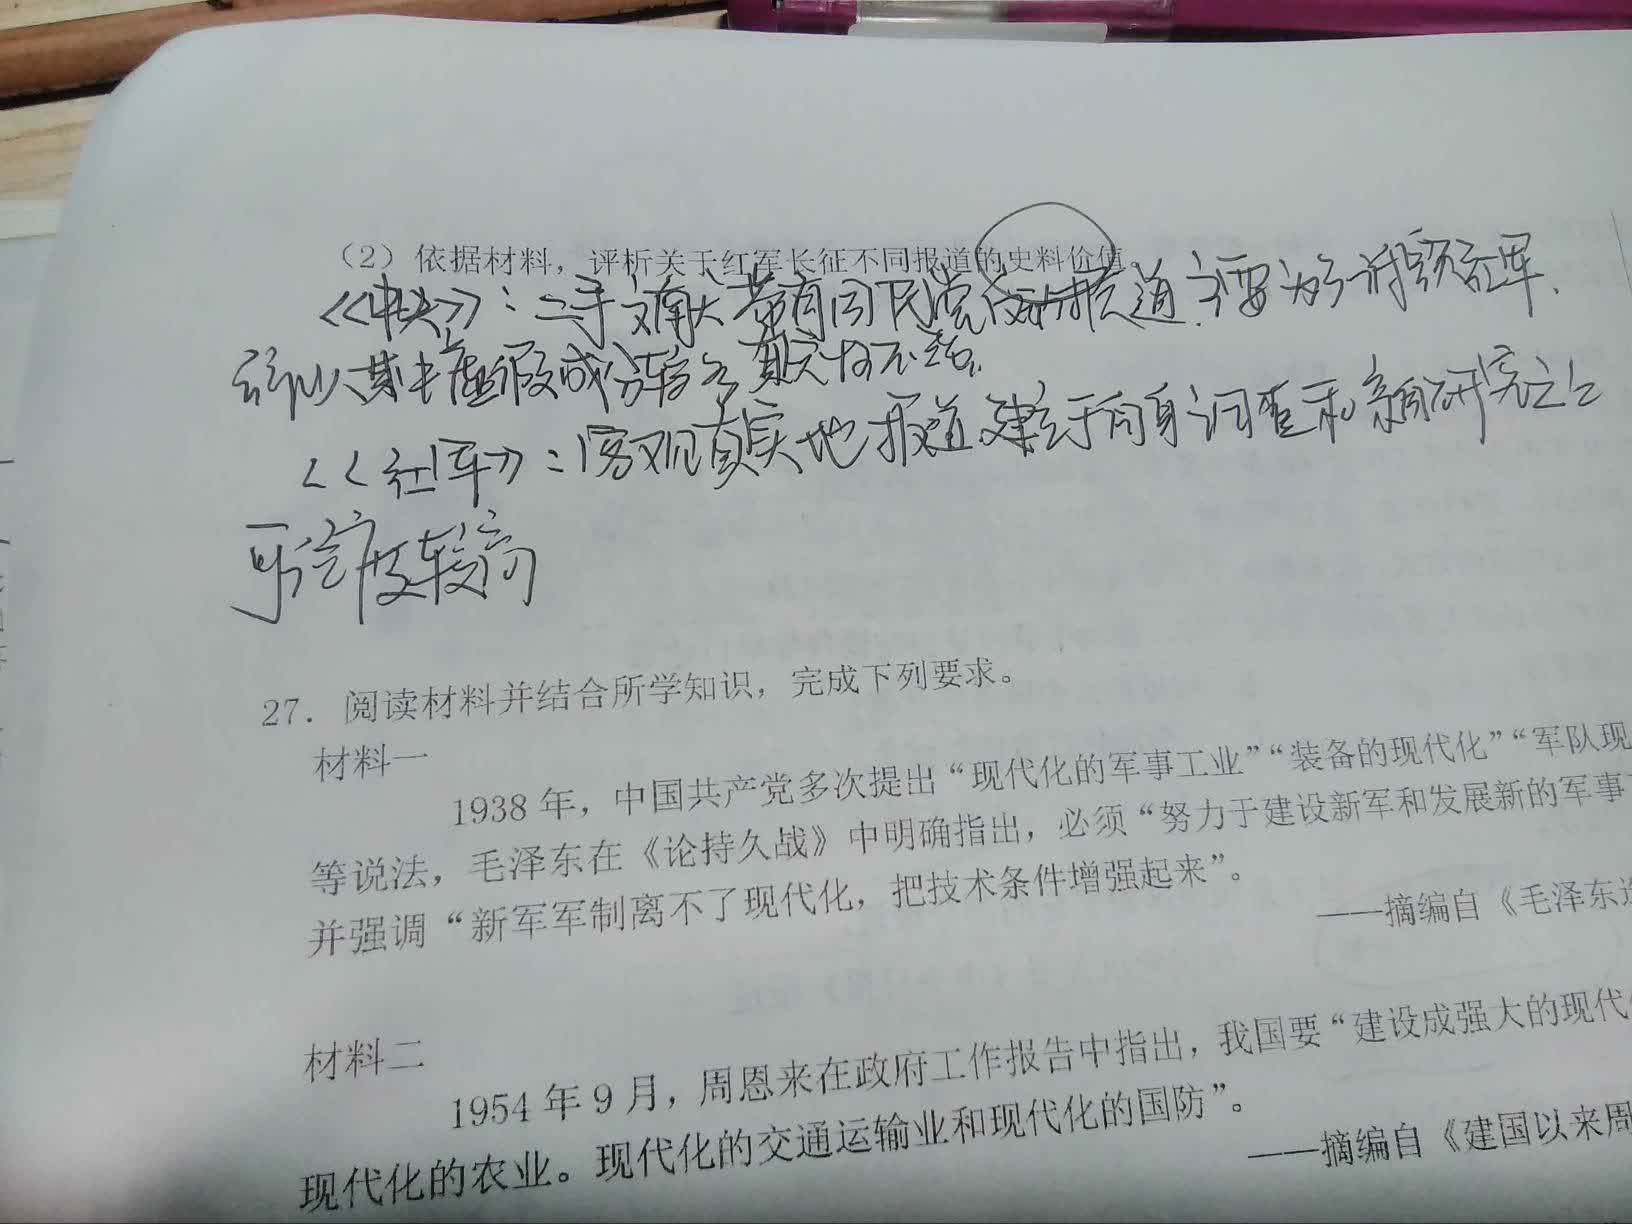 （2）依据材料，评析关于红军长征不同报道的史料价值。
《中央》：二手文献 带有国民党 报道 主要为了 红军、
所以其中虚假成分较多 真实性不高.
《红军》：客观真实地报道 建立于自身调查和 研究之上
可信度较高
27．阅读材料并结合所学知识，完成下列要求。
材料一
1938 年，中国共产党多次提出“现代化的军事工业”“装备的现代化”“军队现
等说法，毛泽东在《论持久战》中明确指出，必须“努力于建设新军和发展新的军事
并强调“新军军制离不了现代化，把技术条件增强起来”。
——摘编自《毛泽东选
材料二
1954 年 9 月，周恩来在政府工作报告中指出，我国要“建设成强大的现代
现代化的农业。现代化的交通运输业和现代化的国防”。
——摘编自《建国以来周